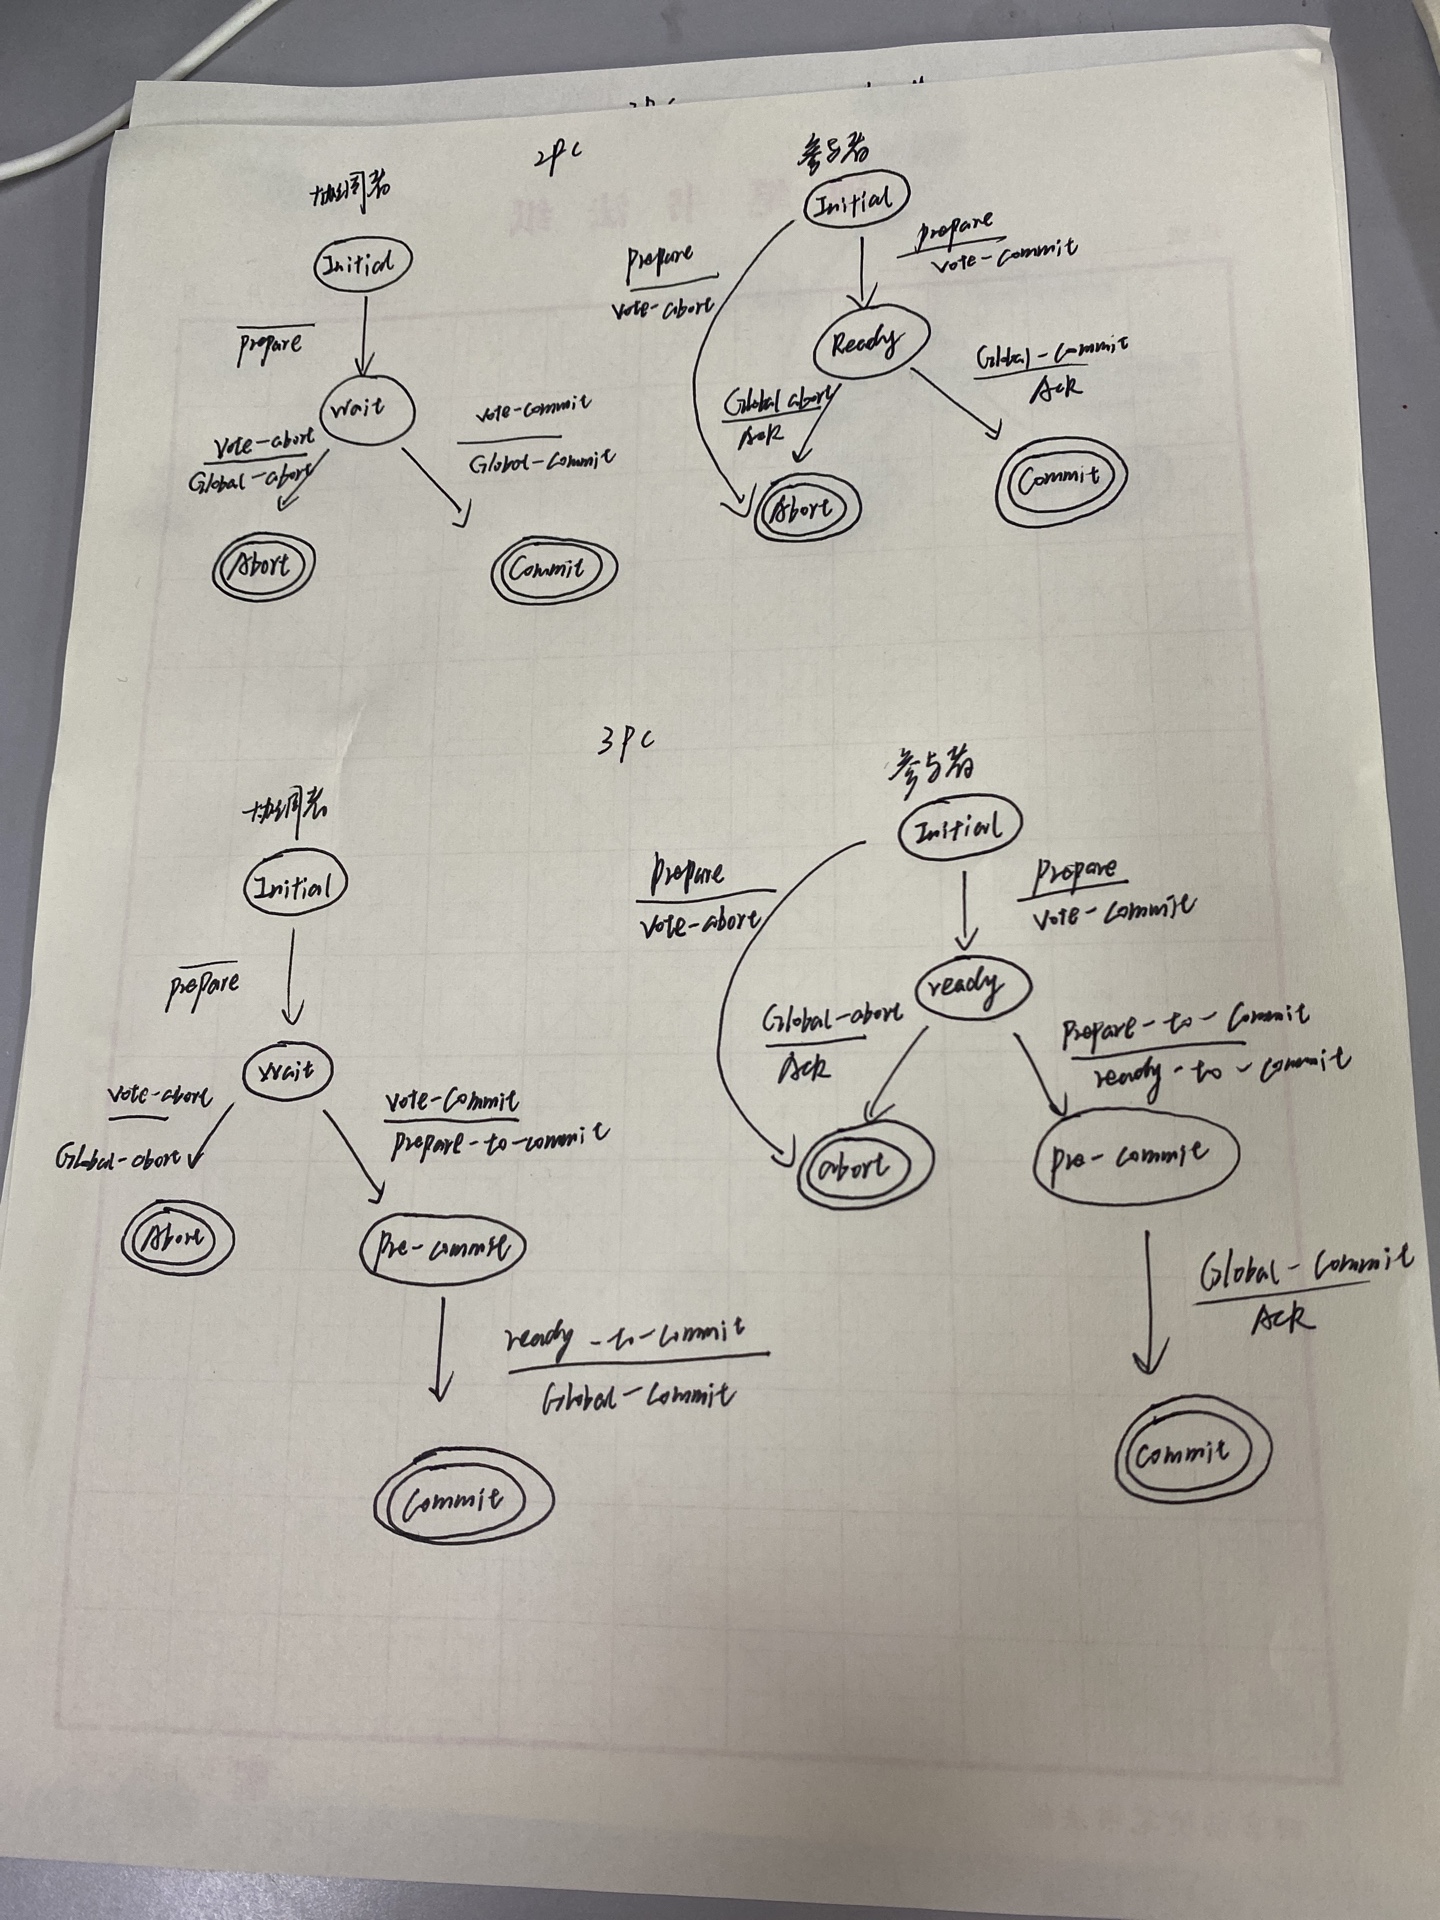 2PC
协调者
Initial
Prepare
Wait
Vote-abort
Global-abort
Vote-commit
Global-Commit
Abort
Commit
参与者
Initial
Prepare
Vote-abort
Prepare
Vote-commit
Ready
Global abort
Ack
Global-Commit
Ack
Abort
Commit
3PC
协调者
Initial
Prepare
Wait
Vote-abort
Global-abort
Vote-Commit
Prepare-to-commit
Abort
Pre-commit
ready-to-Commit
Global-Commit
Commit
参与者
Initial
Prepare
Vote-abort
Prepare
Vote-Commit
ready
Global-abort
Ack
Prepare-to-Commit
ready-to-Commit
abort
Pre-commit
Global-Commit
Ack
Commit